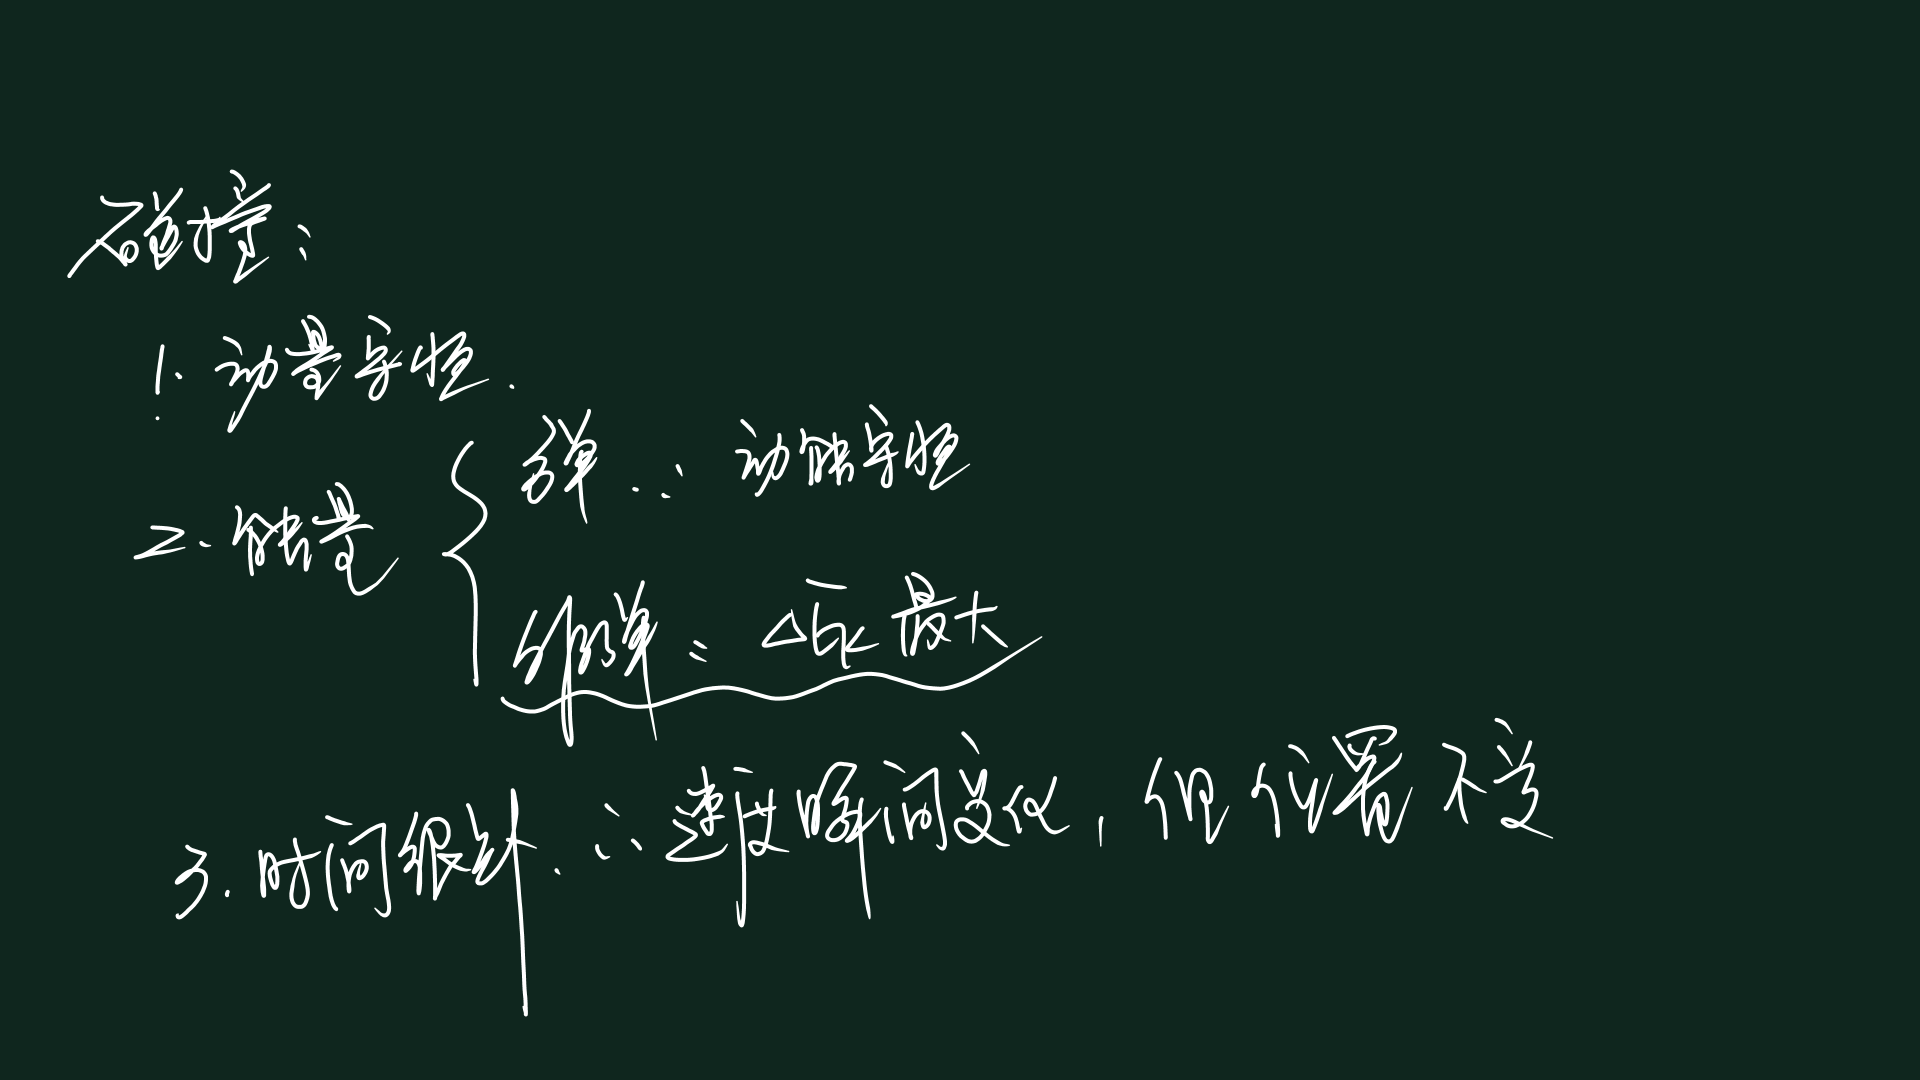 碰撞:
1. 动量守恒.
2. 能量
弹: 动能守恒
非弹: ΔEk 最大
3. 时间很短. ∴ 速度瞬间变化, 但位置不变